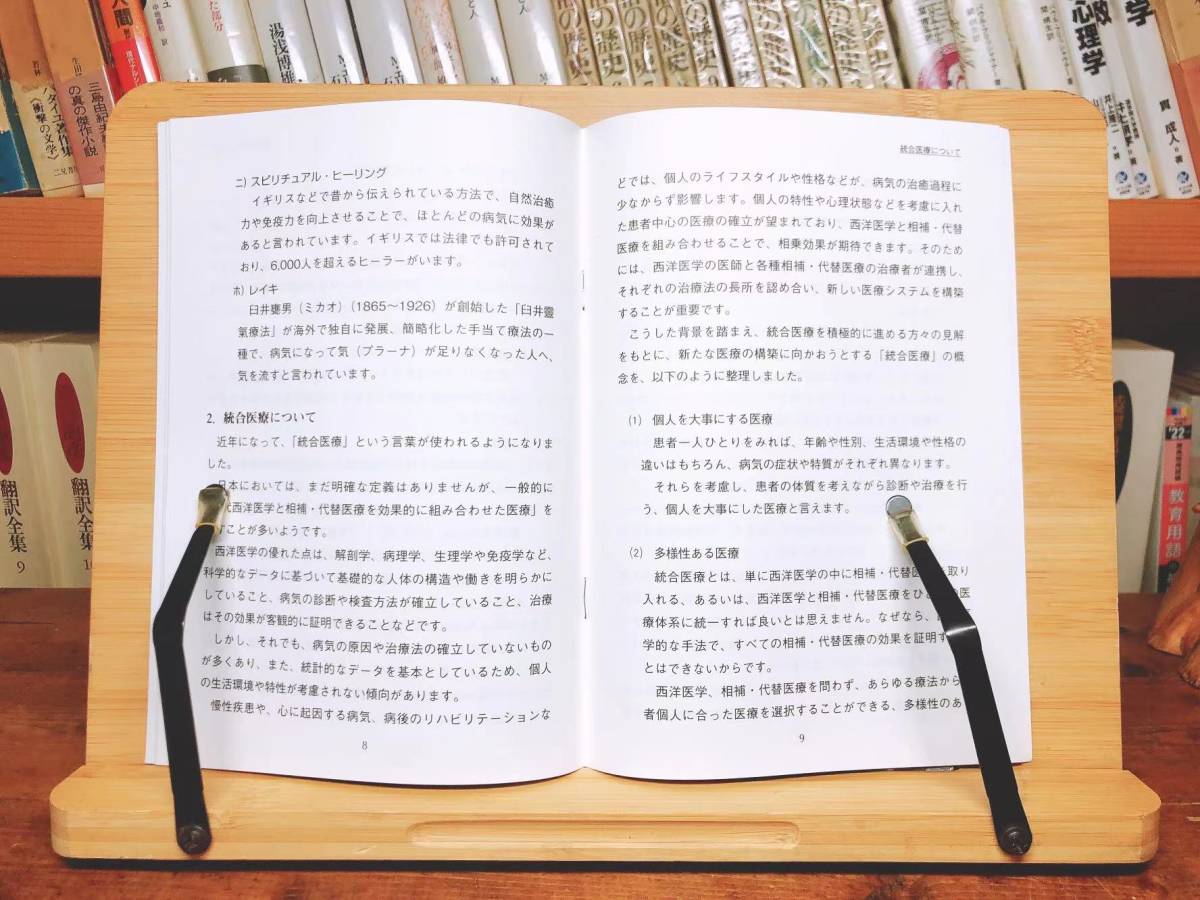 ニ) スピリチュアル・ヒーリング
イギリスなどで昔から伝えられている方法で、自然治癒
力や免疫力を向上させることで、ほとんどの病気に効果が
あると言われています。イギリスでは法律でも許可されて
おり、6,000人を超えるヒーラーがいます。
ホ) レイキ
臼井甕男（ミカオ）(1865〜1926) が創始した「臼井靈
氣療法」が海外で独自に発展、簡略化した手当て療法の一
種で、病気になって気（プラーナ）が足りなくなった人へ、
気を流すと言われています。
2. 統合医療について
近年になって、「統合医療」という言葉が使われるようになりま
した。
日本においては、まだ明確な定義はありませんが、一般的に
西洋医学と相補・代替医療を効果的に組み合わせた医療」を
すことが多いようです。
西洋医学の優れた点は、解剖学、病理学、生理学や免疫学など、
科学的なデータに基づいて基礎的な人体の構造や働きを明らかに
していること、病気の診断や検査方法が確立していること、治療
はその効果が客観的に証明できることなどです。
しかし、それでも、病気の原因や治療法の確立していないもの
が多くあり、また、統計的なデータを基本としているため、個人
の生活環境や特性が考慮されない傾向があります。
慢性疾患や、心に起因する病気、病後のリハビリテーションな
8
統合医療について
どでは、個人のライフスタイルや性格などが、病気の治癒過程に
少なからず影響します。個人の特性や心理状態などを考慮に入れ
た患者中心の医療の確立が望まれており、西洋医学と相補・代替
医療を組み合わせることで、相乗効果が期待できます。そのため
には、西洋医学の医師と各種相補・代替医療の治療者が連携し、
それぞれの治療法の長所を認め合い、新しい医療システムを構築
することが重要です。
こうした背景を踏まえ、統合医療を積極的に進める方々の見解
をもとに、新たな医療の構築に向かおうとする「統合医療」の概
念を、以下のように整理しました。
(1) 個人を大事にする医療
患者一人ひとりをみれば、年齢や性別、生活環境や性格の
違いはもちろん、病気の症状や特質がそれぞれ異なります。
それらを考慮し、患者の体質を考えながら診断や治療を行
う、個人を大事にした医療と言えます。
(2) 多様性ある医療
統合医療とは、単に西洋医学の中に相補・代替医 を取り
入れる、あるいは、西洋医学と相補・代替医療をひ の医
療体系に統一すれば良いとは思えません。なぜなら、
学的な手法で、すべての相補・代替医療の効果を証明す
とはできないからです。
西洋医学、相補・代替医療を問わず、あらゆる療法から
者個人に合った医療を選択することができる、多様性のあ
9
三島由紀夫
の真の傑作小説
バタイユ著作集
《衝撃の文学》
人間
湯浅博雄
の歴史
心理学
貫 成人
翻訳全集
9
翻訳全集
10
'22
教育用語